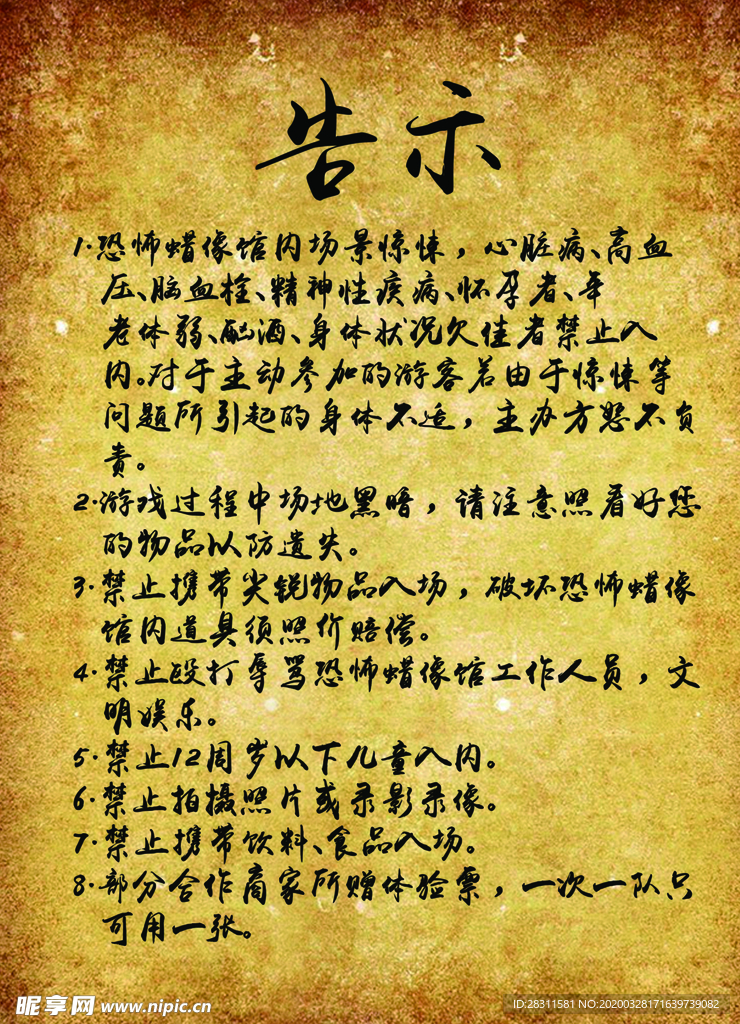 告示
1.恐怖蜡像馆内场景惊悚，心脏病、高血
压、脑血栓、精神性疾病、怀孕者、年
老体弱、酗酒、身体状况欠佳者禁止入
内。对于主动参加的游客若由于惊悚等
问题所引起的身体不适，主办方恕不负
责。
2.游戏过程中场地黑暗，请注意照看好您
的物品以防遗失。
3.禁止携带尖锐物品入场，破坏恐怖蜡像
馆内道具须照价赔偿。
4.禁止殴打辱骂恐怖蜡像馆工作人员，文
明娱乐。
5.禁止12周岁以下儿童入内。
6.禁止拍摄照片或录影录像。
7.禁止携带饮料、食品入场。
8.部分合作商家所赠体验票，一次一队只
可用一张。
昵享网 www.nipic.cn
ID:28311581 NO:20200328171639739082